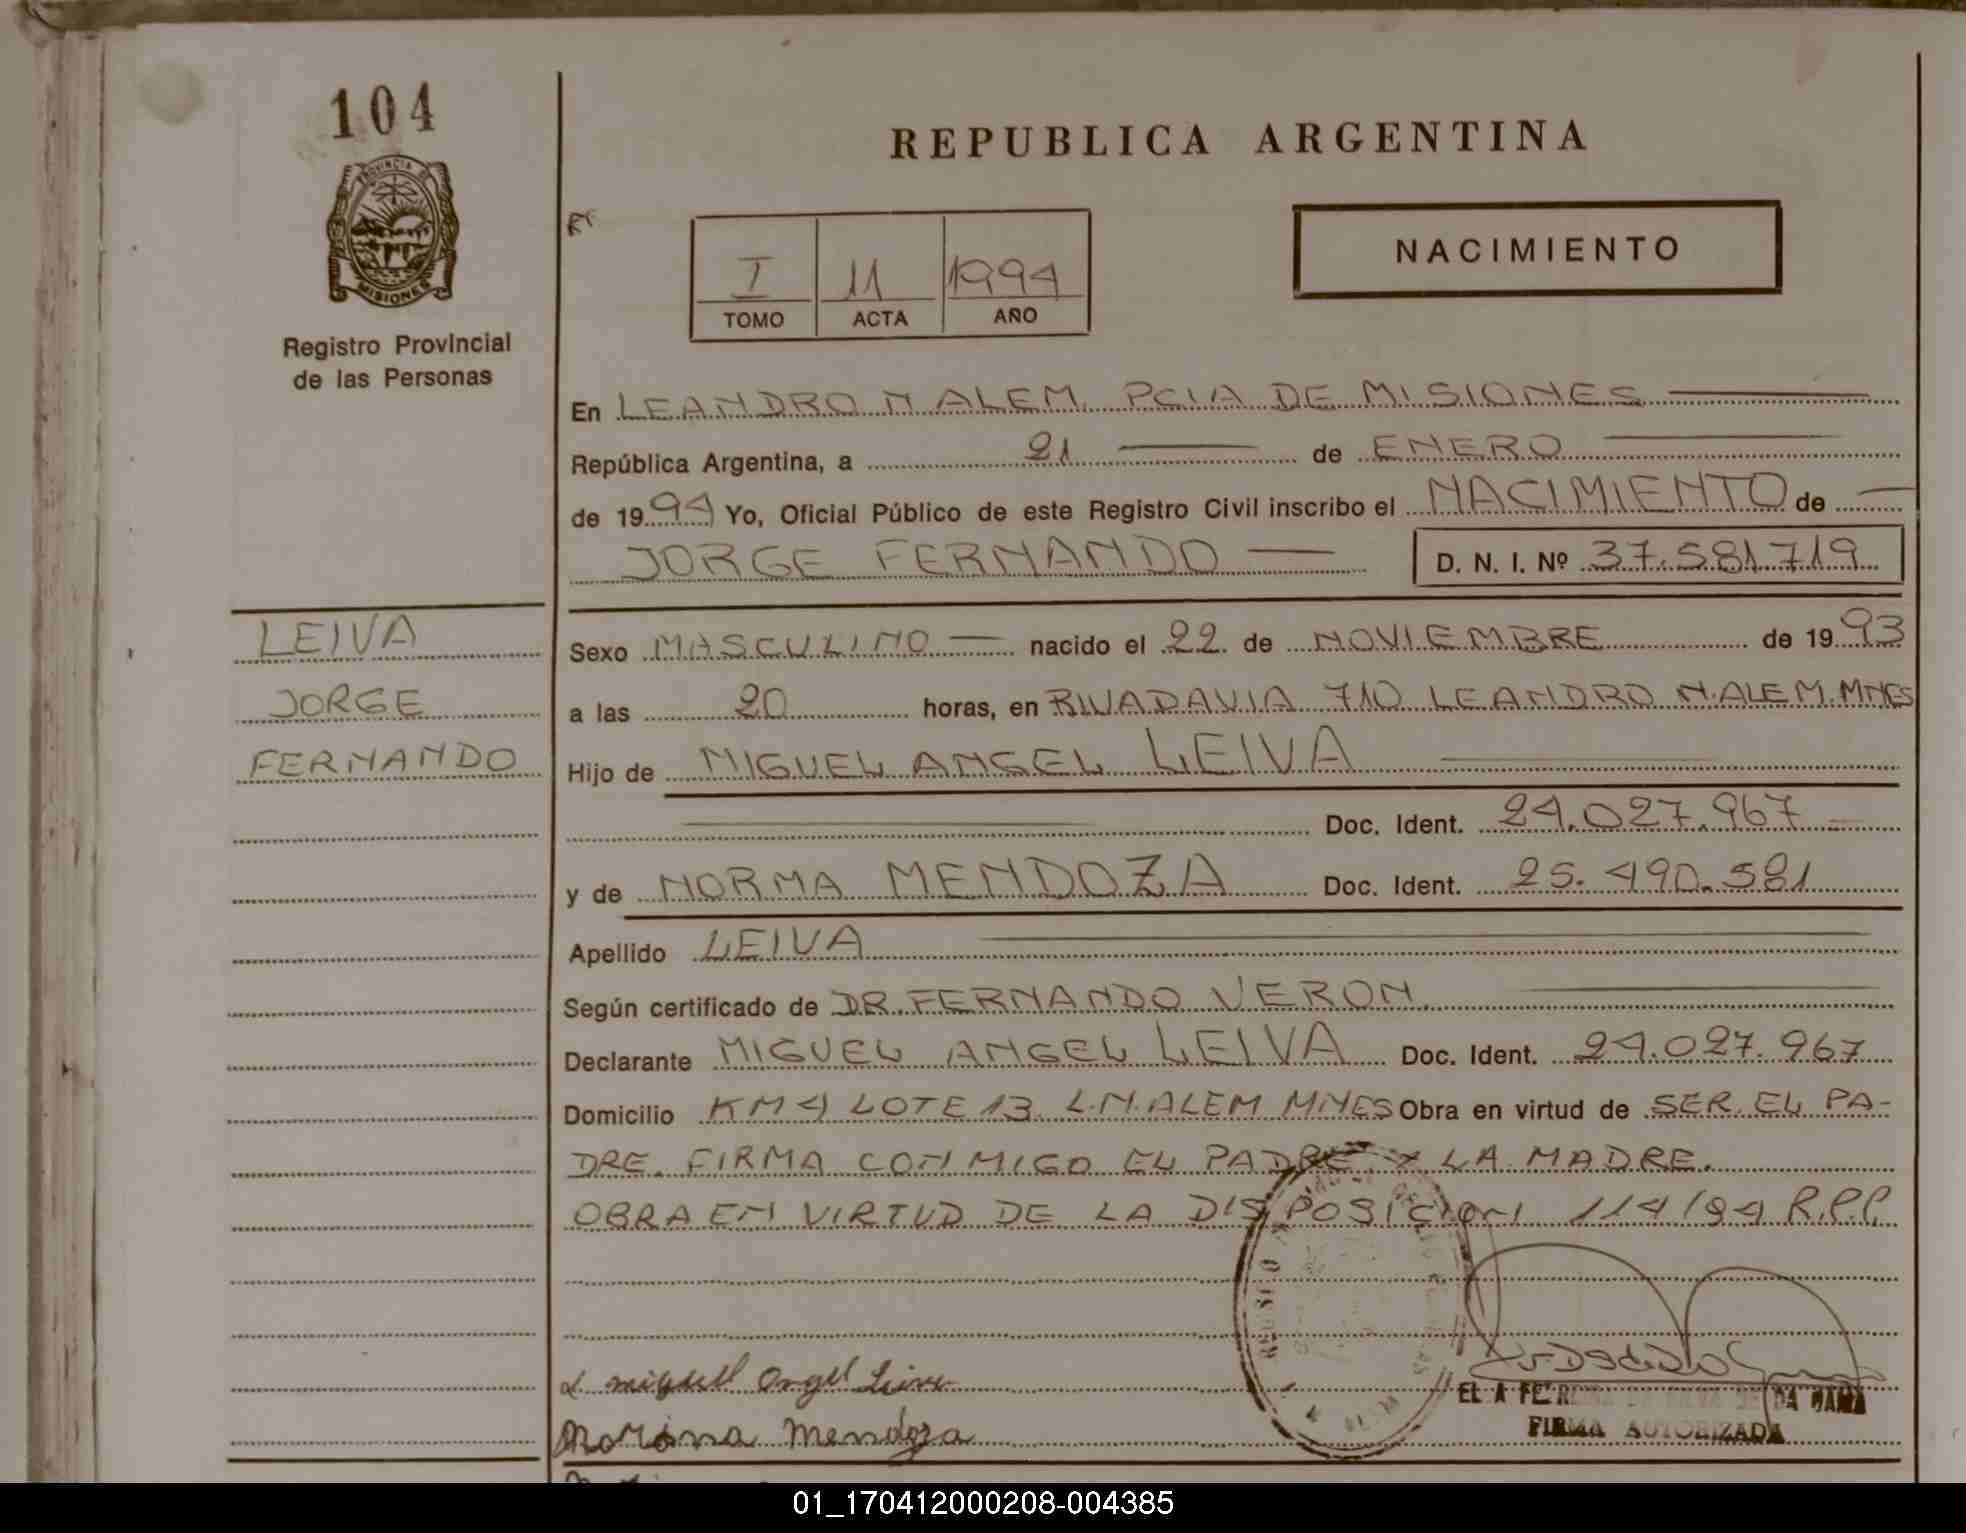 104
PROVINCIA DE
MISIONES
Registro Provincial
de las Personas
LEIVA
JORGE
FERNANDO
REPUBLICA ARGENTINA
NACIMIENTO
I 11 1994
TOMO ACTA AÑO
En LEANDRO N ALEM. PCIA DE MISIONES
República Argentina, a 21 de ENERO
de 1994 Yo, Oficial Público de este Registro Civil inscribo el NACIMIENTO de
JORGE FERNANDO D. N. I. Nº 37.581.719
Sexo MASCULINO nacido el 22 de NOVIEMBRE de 1993
a las 20 horas, en RIVADAVIA 710 LEANDRO N. ALEM. MNES
Hijo de MIGUEL ANGEL LEIVA
Doc. Ident. 24.027.967
y de NORMA MENDOZA Doc. Ident. 25.490.581
Apellido LEIVA
Según certificado de DR. FERNANDO VERON.
Declarante MIGUEL ANGEL LEIVA Doc. Ident. 24.027.967
Domicilio KM 4 LOTE 13 L.N. ALEM MNES Obra en virtud de SER EL PA-
DRE. FIRMA CONMIGO EL PADRE Y LA MADRE.
OBRA EN VIRTUD DE LA DISPOSICION 114/94 R.P.P.
miguel Angel Leiva
Norma Mendoza
DA GAMA
FIRMA AUTORIZADA
01_170412000208-004385